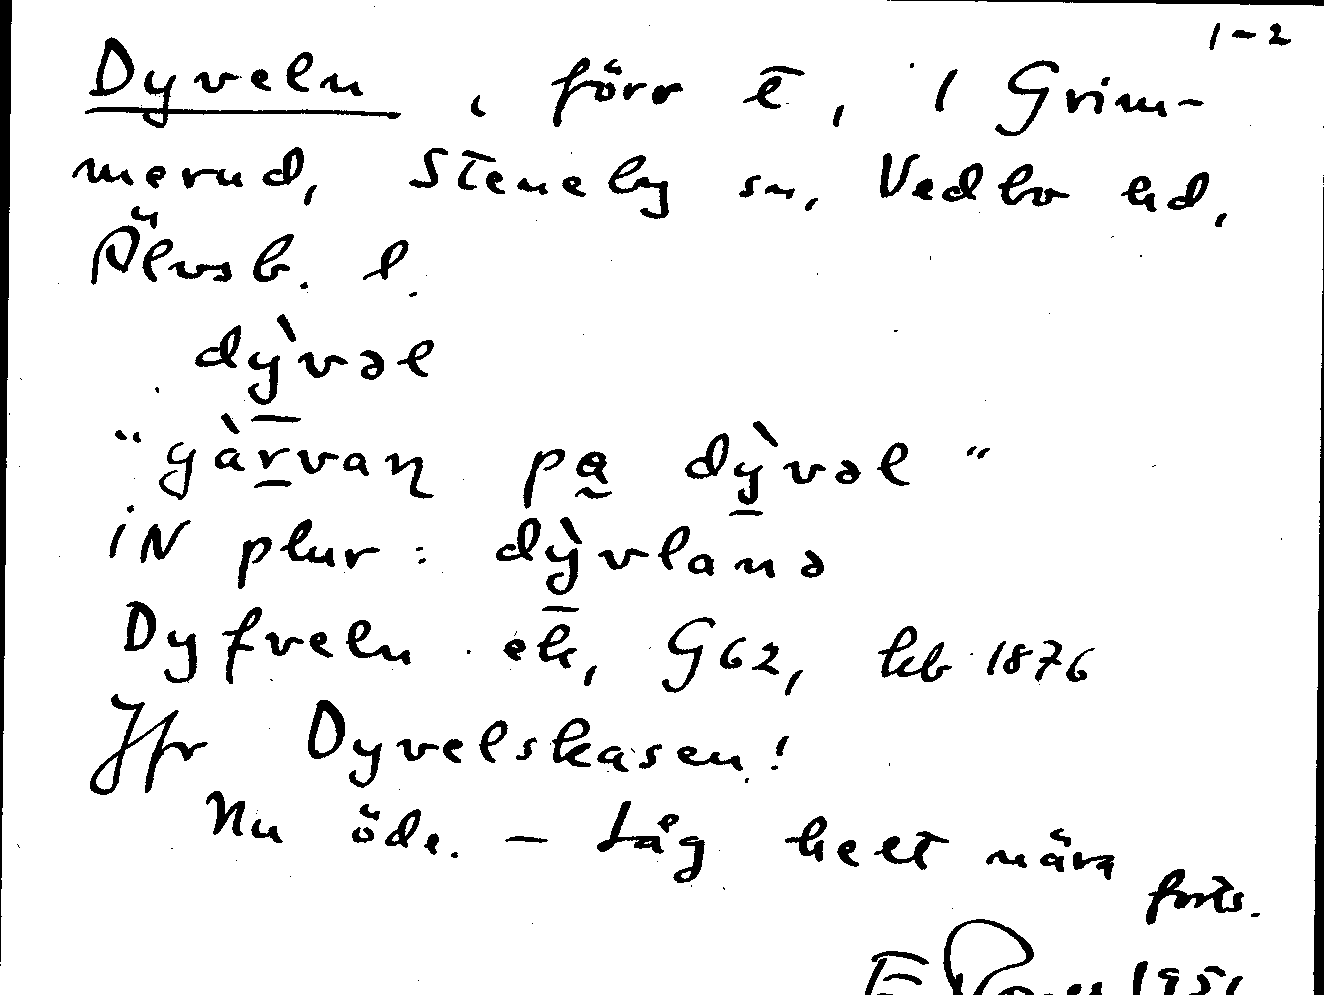 1-2
Dyveln, förr t̄, 1 Grim-
merud, Steneby sn, Vedbo hd,
Älvsb. l.
dỳvəl
"gàrvaɳ pa dỳvəl"
iN plur: dỳvlanə
Dyfveln eh, G62, kb 1876
Jfr Dyvelskasen!
Nu öde. - Låg helt nära
forts.